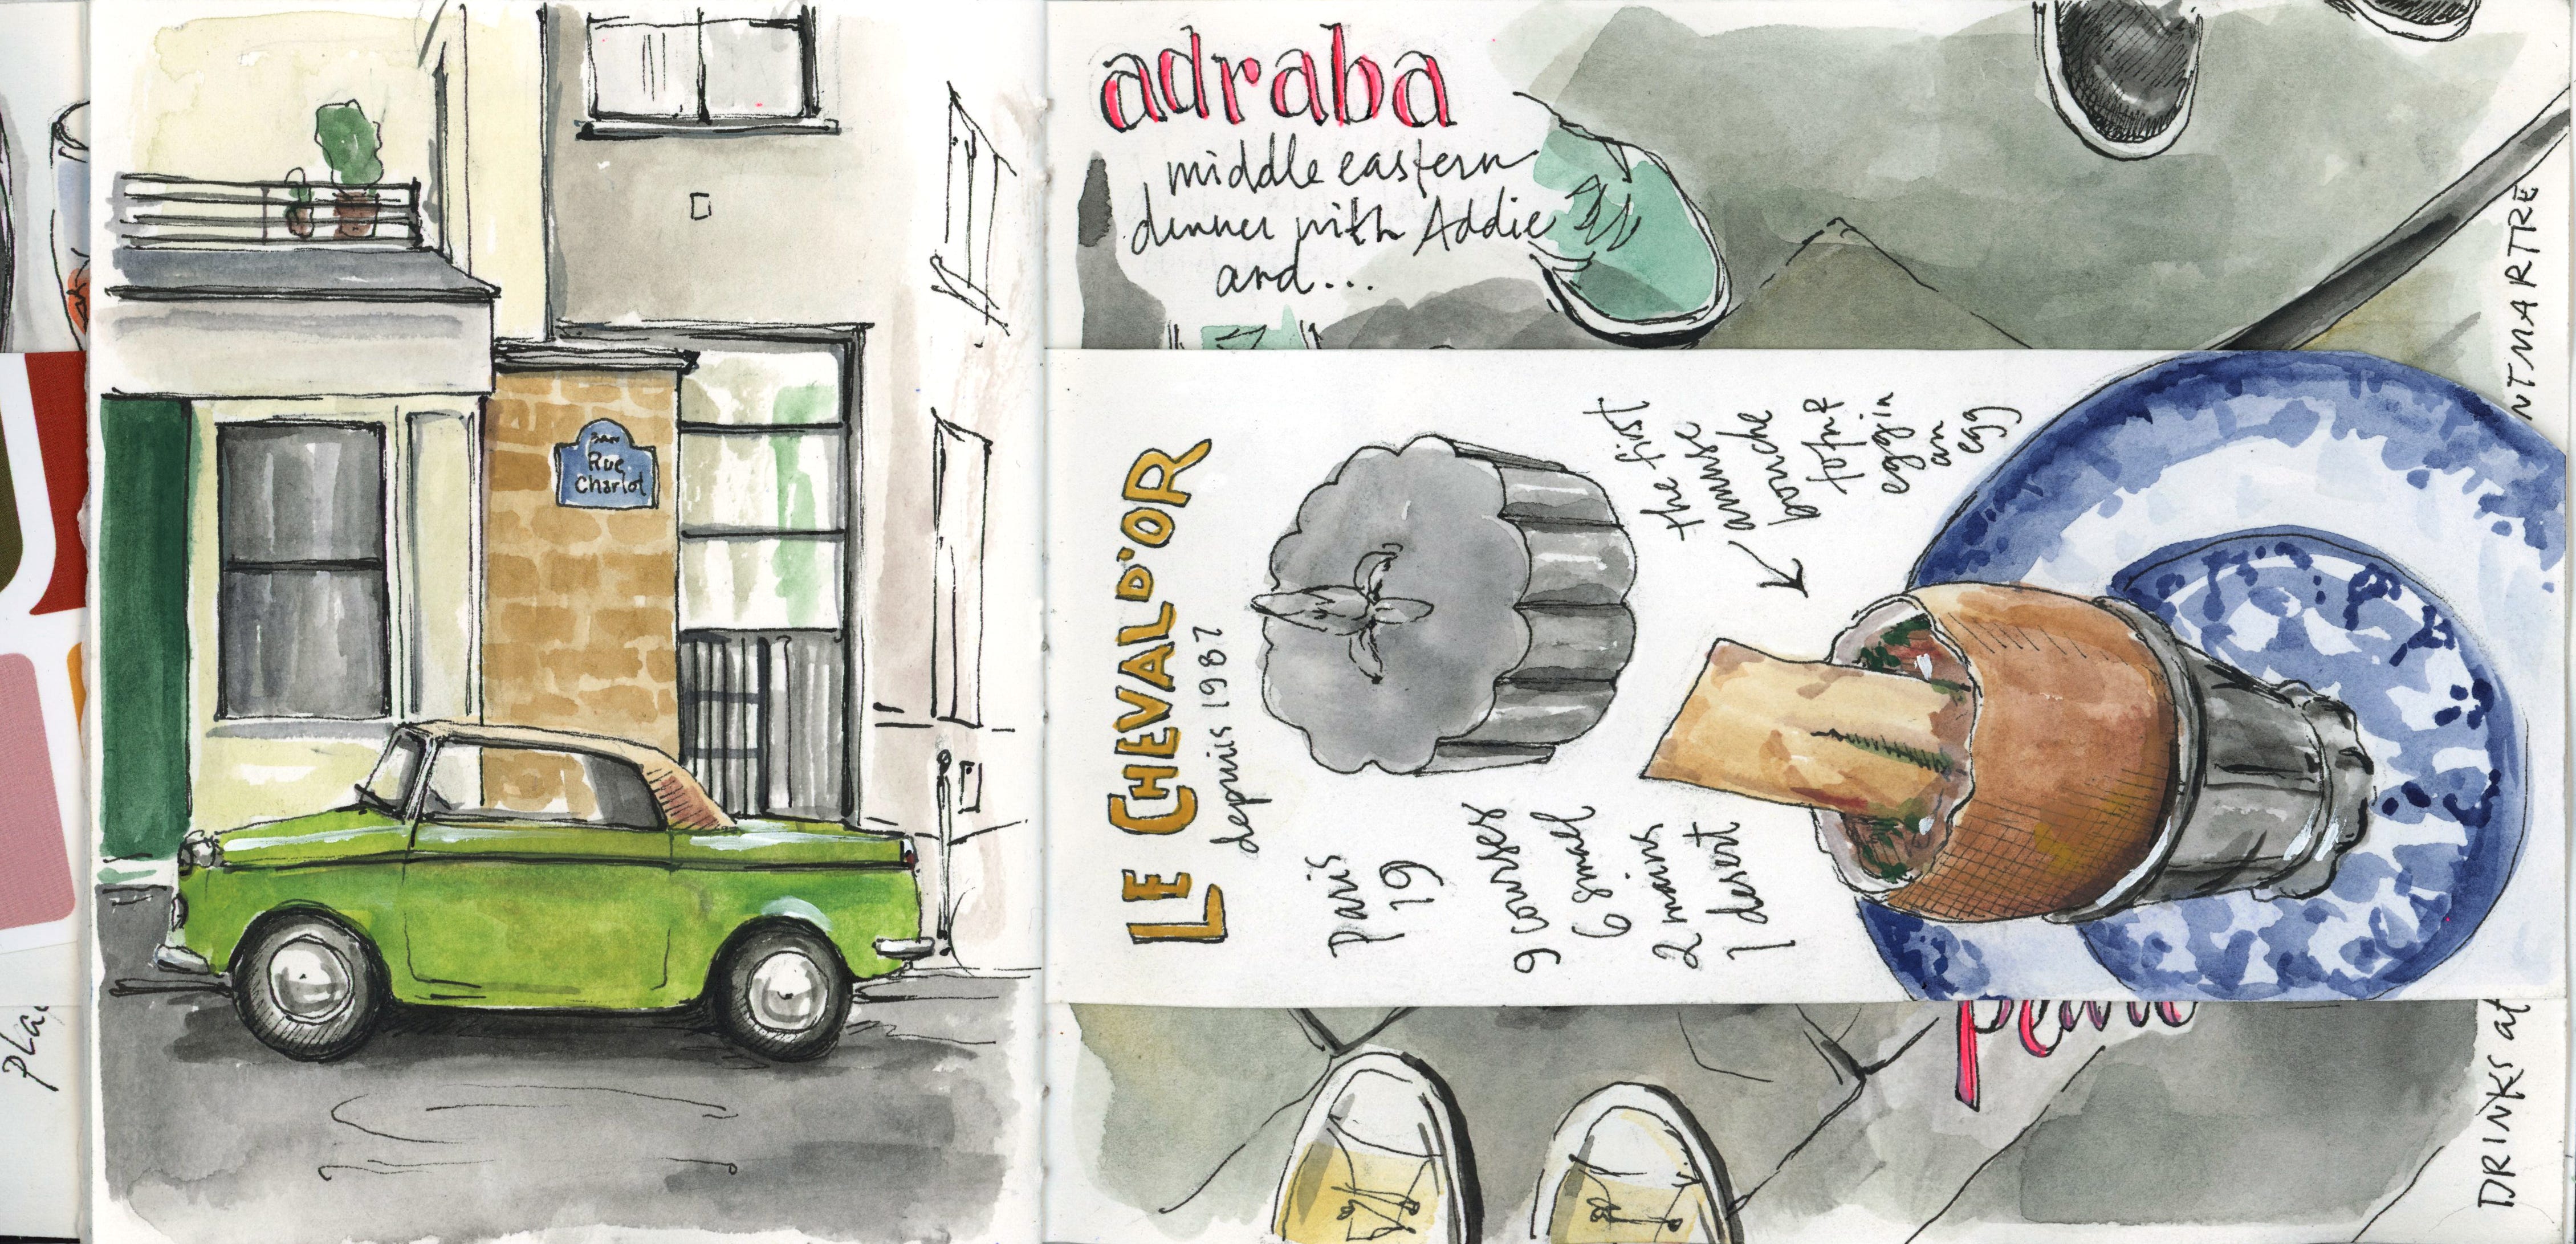 3em
Rue
Charlot
adraba
middle eastern
dinner with Addie
and...
LE CHEVAL D'OR
depuis 1987
Paris
19
9 courses
6 small
2 mains
1 desert
the first
amuse
bouche
egg in
an
egg
NTMARTRE
DRINKS at